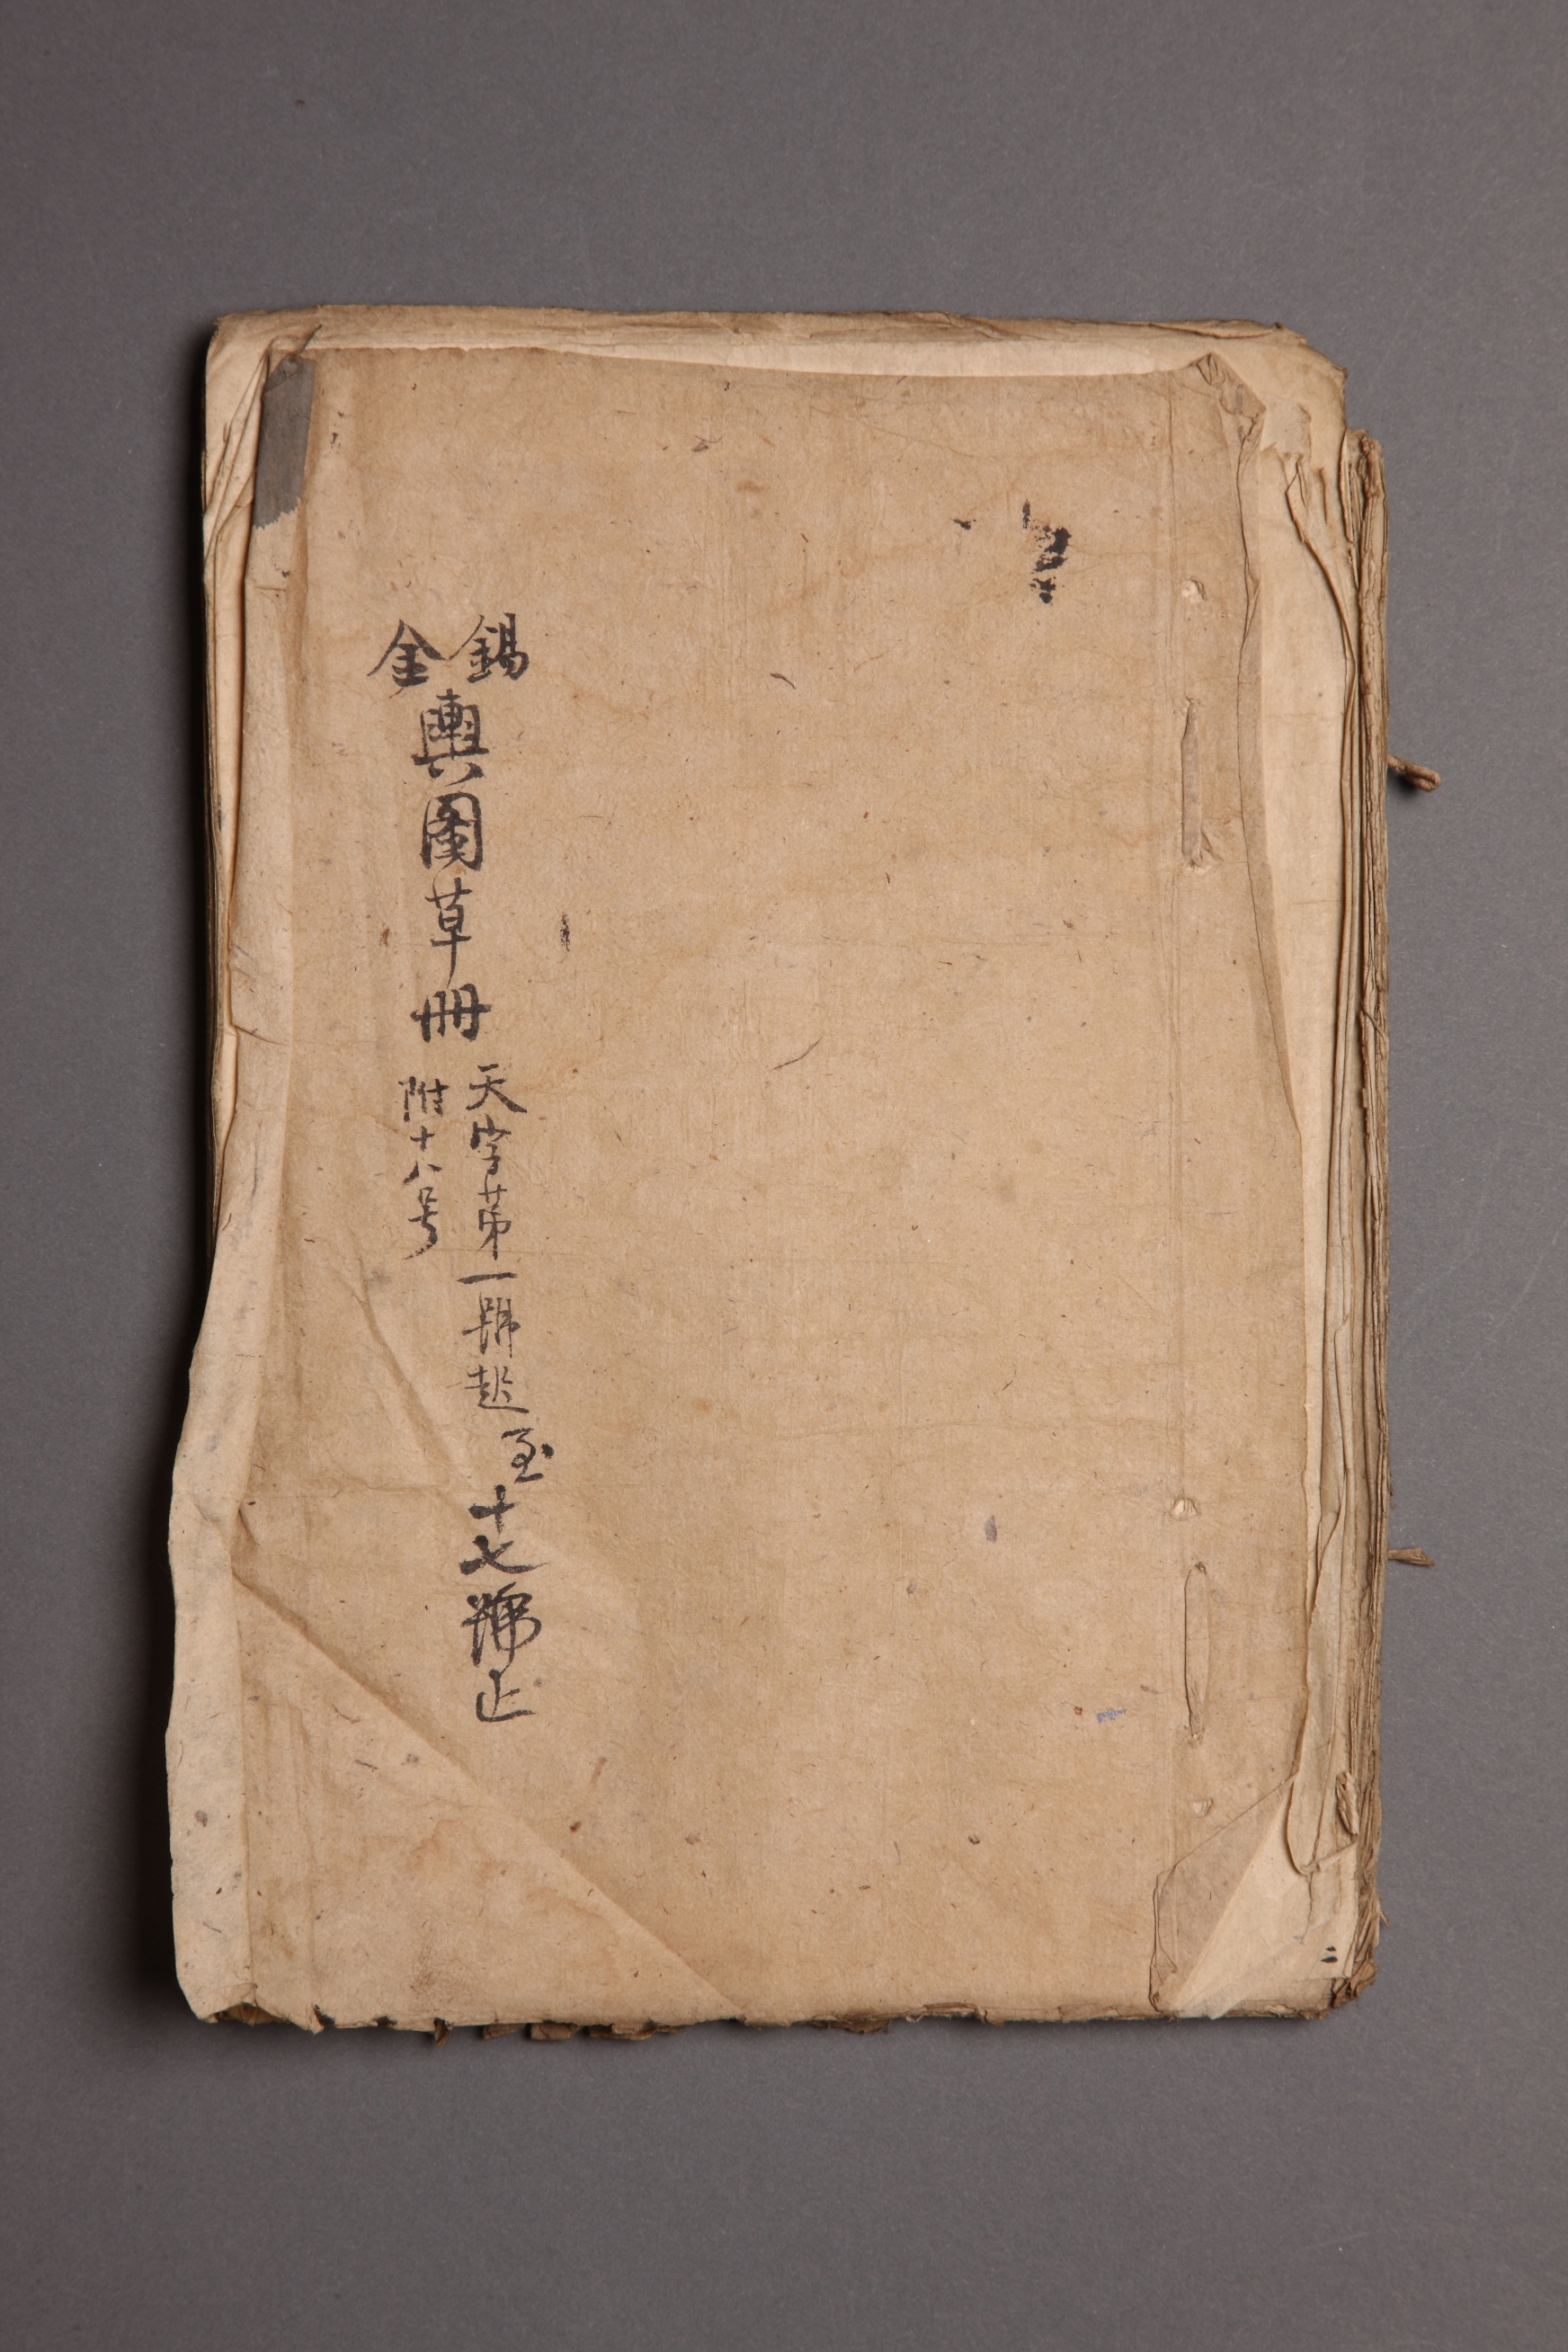 錫金
輿圖草冊
天字第一號起至十七號止
附十八号